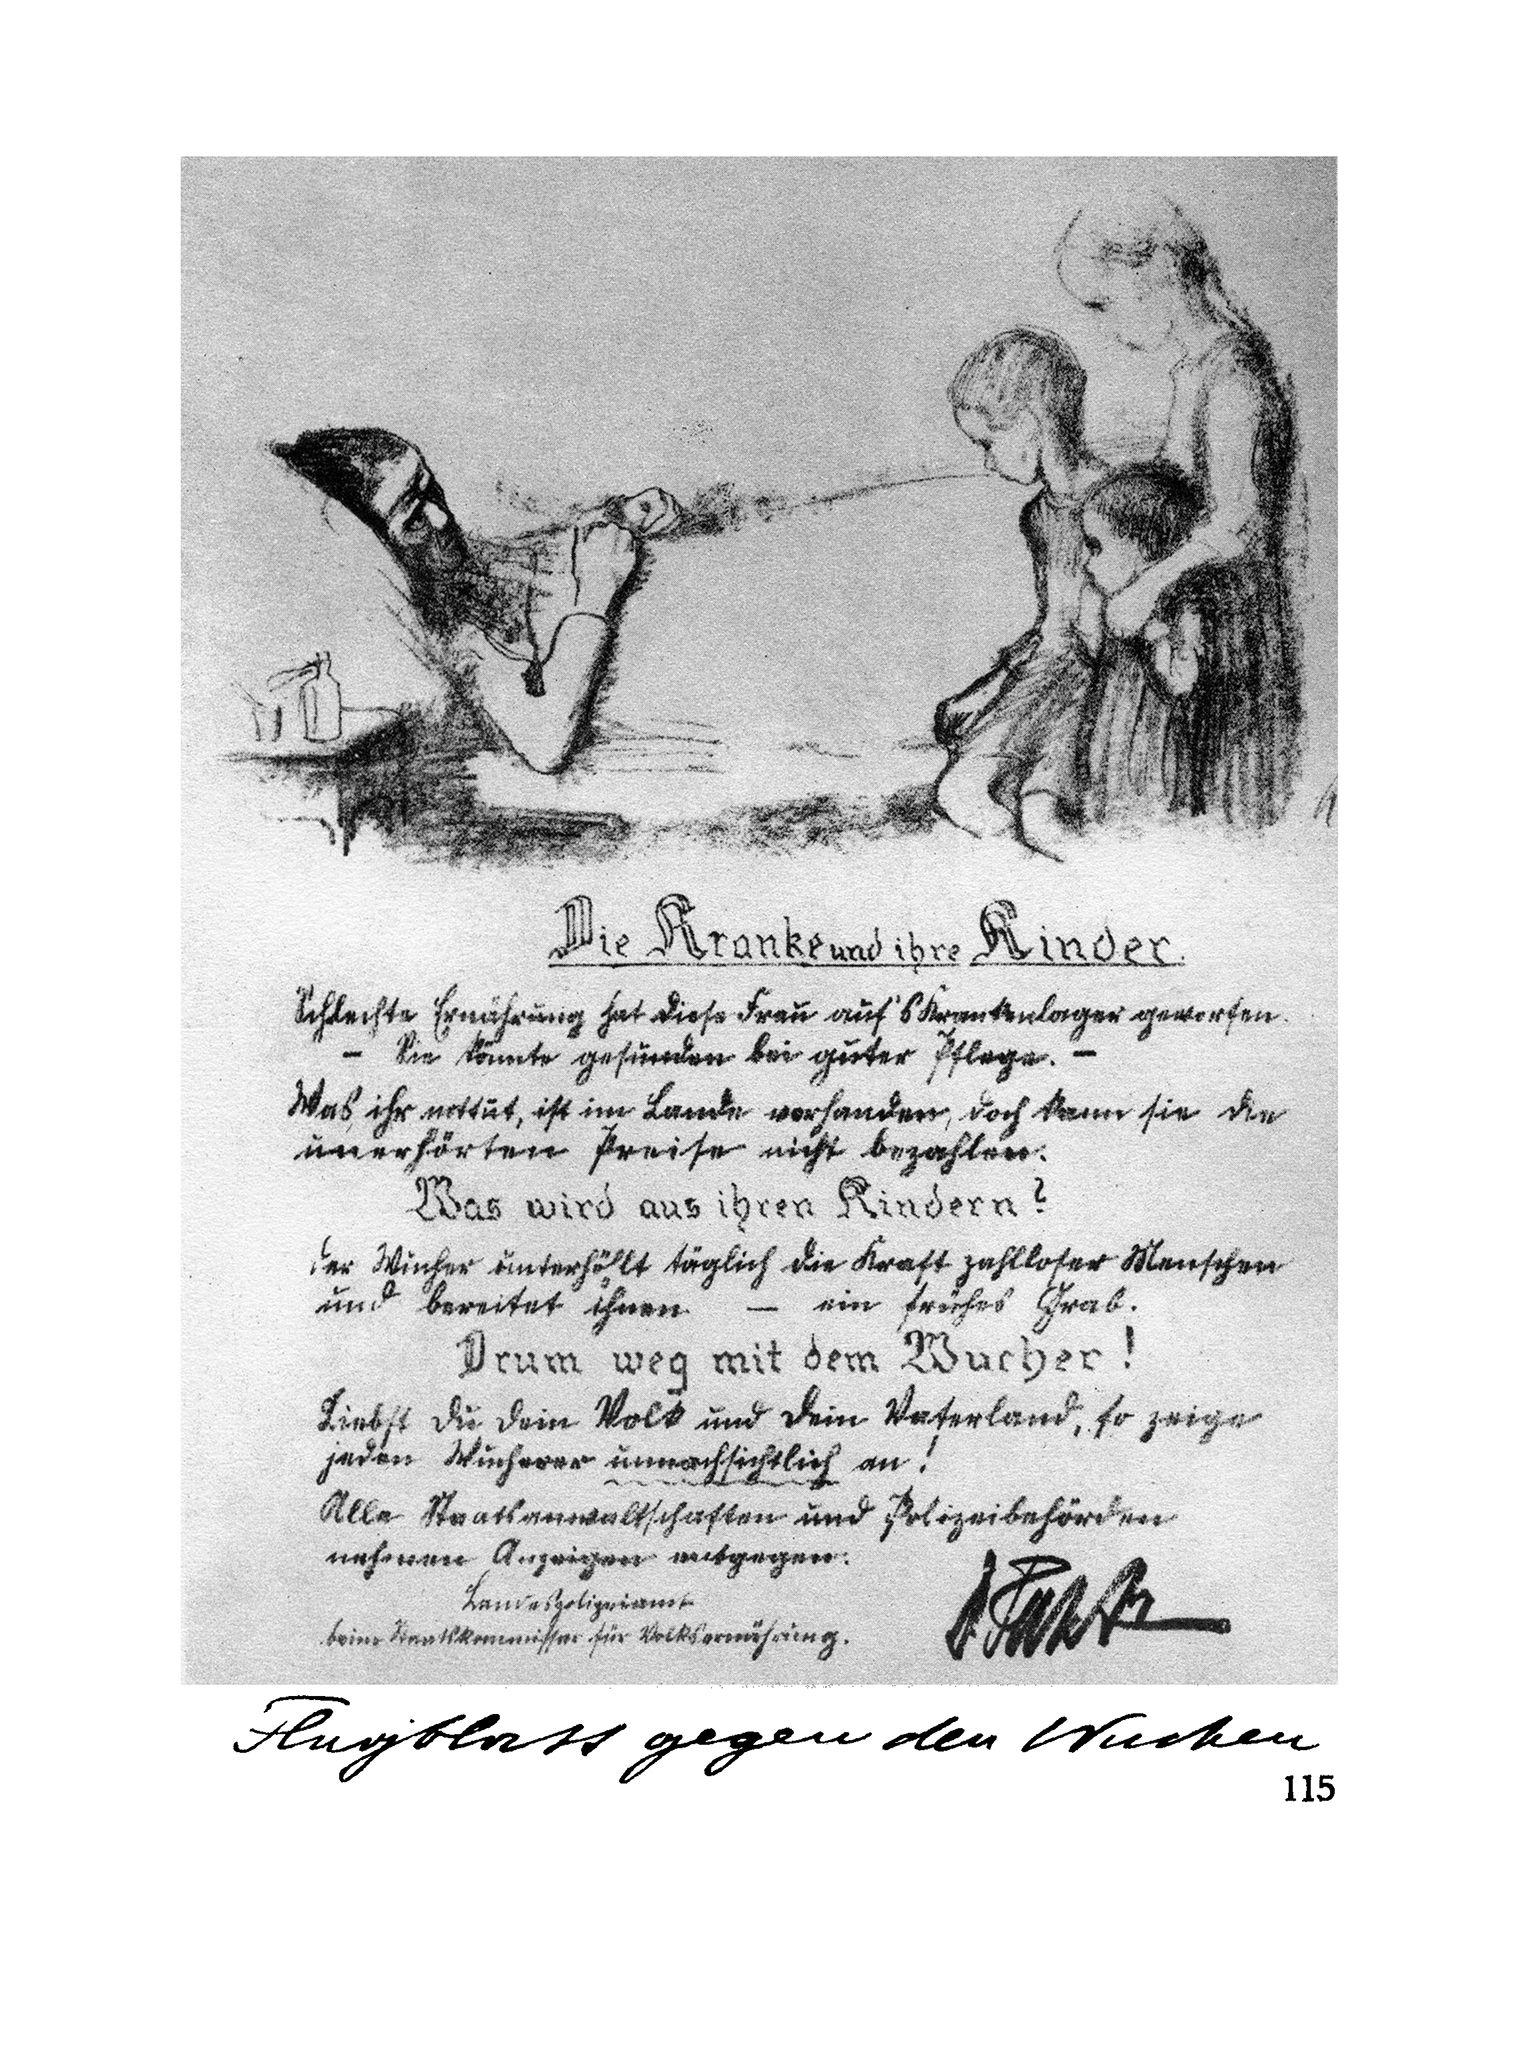 Die Kranke und ihre Kinder.
Schlechte Ernährung hat diese Frau auf's Krankenlager geworfen.
– Sie könnte gesunden bei guter Pflege. –
Was ihr nottut, ist im Lande vorhanden, doch kann sie die
unerhörten Preise nicht bezahlen.
Was wird aus ihren Kindern?
Der Wucher unterhöhlt täglich die Kraft zahlloser Menschen
und bereitet ihnen – ein frühes Grab.
Drum weg mit dem Wucher!
Liebst Du Dein Volk und Dein Vaterland, so zeige
jeden Wucherer unnachsichtlich an!
Alle Staatsanwaltschaften und Polizeibehörden
nehmen Anzeigen entgegen.
Landespolizeiamt
beim Staatskommissar für Volksernährung.
Flugblatt gegen den Wucher
115